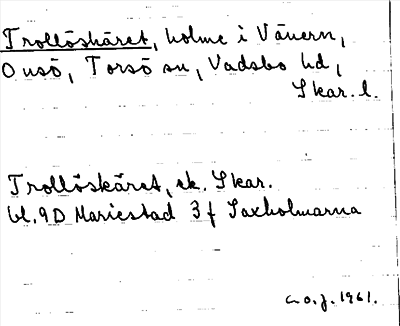 Trollöskäret, holme i Vänern,
Onsö, Torsö sn, Vadsbo hd,
Skar. l.
Trollöskäret, ek. Skar.
bl. 9D Mariestad 3 f Saxholmarna
a.o.j. 1961.